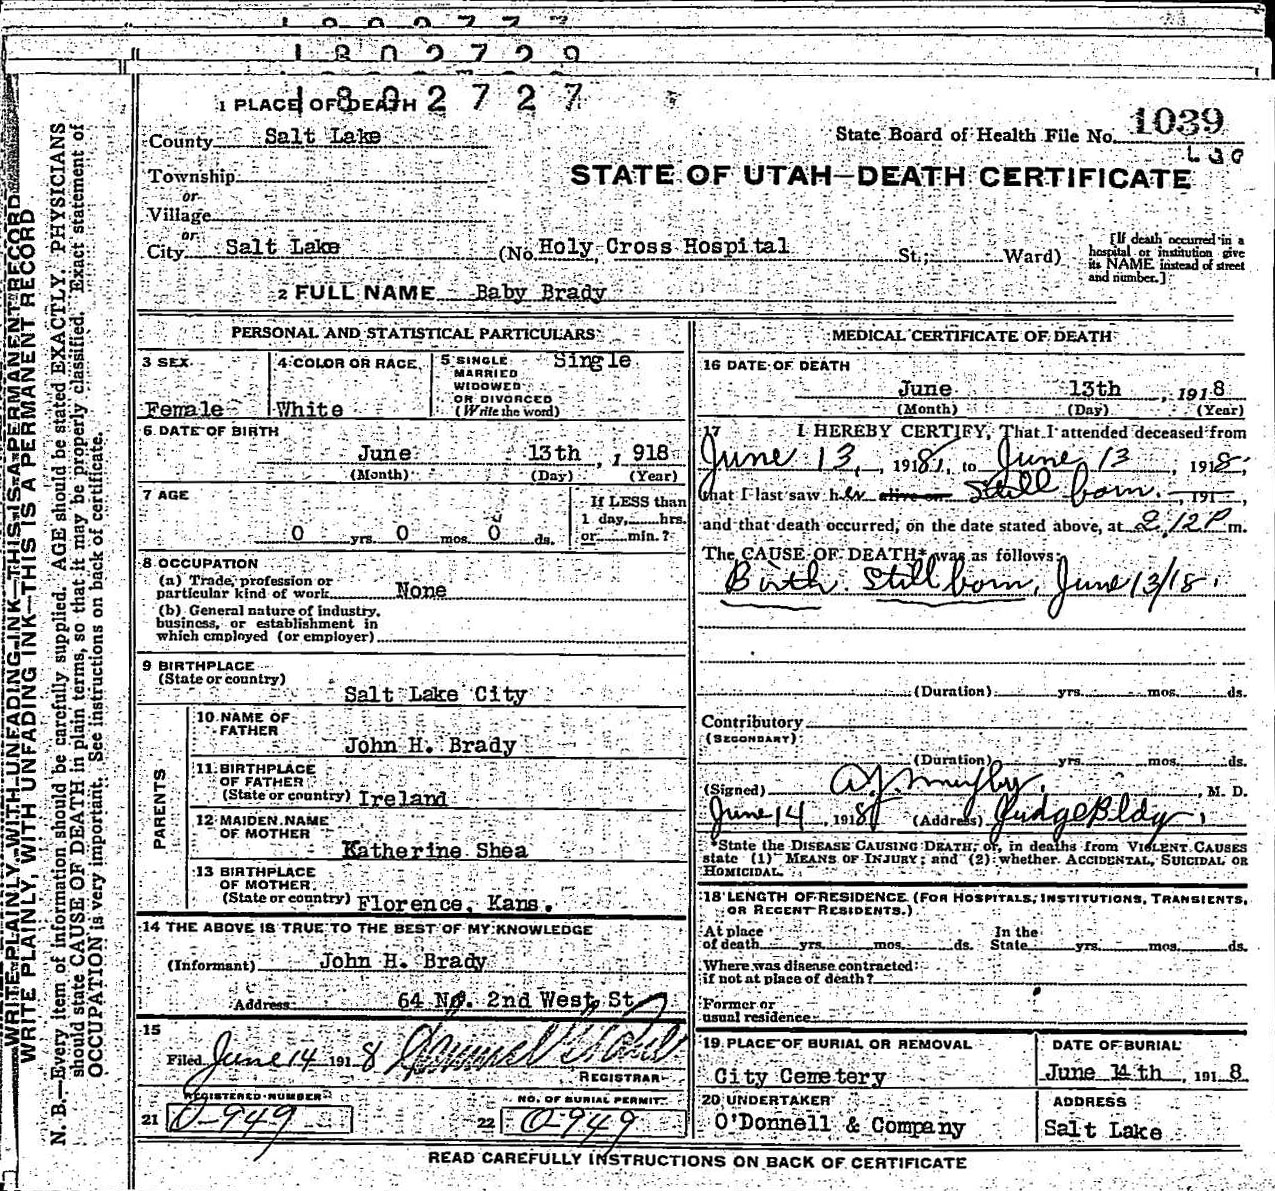 1802729
1802727
1 PLACE OF DEATH
County Salt Lake
State Board of Health File No. 1039
Township
or
Village
or
STATE OF UTAH—DEATH CERTIFICATE
City Salt Lake (No. Holy Cross Hospital St.; Ward)
[If death occurred in a
hospital or institution give
its NAME instead of street
and number.]
2 FULL NAME Baby Brady
PERSONAL AND STATISTICAL PARTICULARS
3 SEX
Female
4 COLOR OR RACE
White
5 SINGLE
MARRIED
WIDOWED
OR DIVORCED
(Write the word)
Single
6 DATE OF BIRTH
June 13th, 1918
(Month) (Day) (Year)
7 AGE
0 yrs. 0 mos. 0 ds.
If LESS than
1 day, hrs.
or min.?
8 OCCUPATION
(a) Trade, profession or
particular kind of work None
(b) General nature of industry,
business, or establishment in
which employed (or employer)
9 BIRTHPLACE
(State or country)
Salt Lake City
PARENTS
10 NAME OF
FATHER
John H. Brady
11 BIRTHPLACE
OF FATHER
(State or country) Ireland
12 MAIDEN NAME
OF MOTHER
Katherine Shea
13 BIRTHPLACE
OF MOTHER
(State or country) Florence, Kans.
14 THE ABOVE IS TRUE TO THE BEST OF MY KNOWLEDGE
(Informant) John H. Brady
Address 64 No. 2nd West St
15
Filed June 14 1918
REGISTRAR
REGISTERED NUMBER
21 O-949
NO. OF BURIAL PERMIT
22 O-949
MEDICAL CERTIFICATE OF DEATH
16 DATE OF DEATH
June 13th, 1918
(Month) (Day) (Year)
17 I HEREBY CERTIFY, That I attended deceased from
June 13, 1918, to June 13, 1918,
that I last saw her alive on Still born. 191 ,
and that death occurred, on the date stated above, at 2/12 P m.
The CAUSE OF DEATH* was as follows:
Birth. Still born, June 13/18.
(Duration) yrs. mos. ds.
Contributory
(SECONDARY)
(Duration) yrs. mos. ds.
(Signed) , M. D.
June 14, 1918 (Address) Judge Bldg.
*State the DISEASE CAUSING DEATH, or, in deaths from VIOLENT CAUSES
state (1) MEANS OF INJURY; and (2) whether ACCIDENTAL, SUICIDAL OR
HOMICIDAL.
18 LENGTH OF RESIDENCE (FOR HOSPITALS, INSTITUTIONS, TRANSIENTS,
OR RECENT RESIDENTS.)
At place
of death yrs. mos. ds.
In the
State yrs. mos. ds.
Where was disease contracted
if not at place of death?
Former or
usual residence
19 PLACE OF BURIAL OR REMOVAL
City Cemetery
DATE OF BURIAL
June 14th, 1918
20 UNDERTAKER
O'Donnell & Company
ADDRESS
Salt Lake
READ CAREFULLY INSTRUCTIONS ON BACK OF CERTIFICATE
WRITE PLAINLY, WITH UNFADING INK—THIS IS A PERMANENT RECORD
WRITE PLAINLY, WITH UNFADING INK—THIS IS A PERMANENT RECORD
N. B.—Every item of information should be carefully supplied. AGE should be stated EXACTLY. PHYSICIANS
should state CAUSE OF DEATH in plain terms, so that it may be properly classified. Exact statement of
OCCUPATION is very important. See instructions on back of certificate.